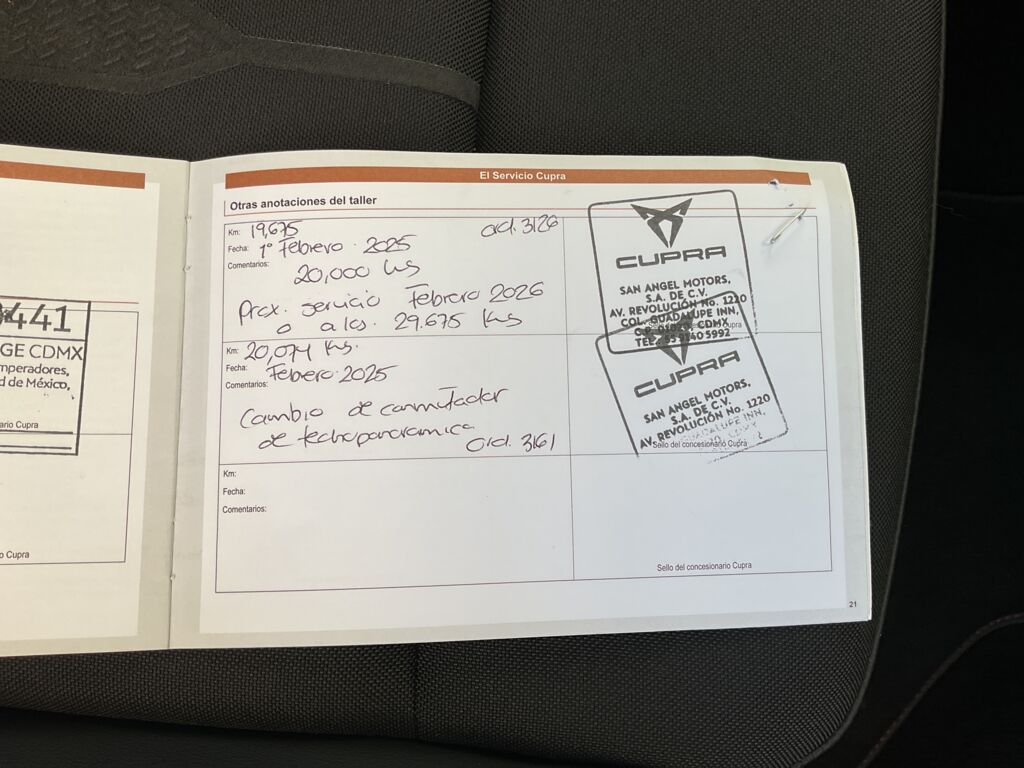 441
GE CDMX
mperadores,
d de México,
ario Cupra
o Cupra
El Servicio Cupra
Otras anotaciones del taller
Km: 19,675 Ord. 3126
Fecha: 1º Febrero. 2025
Comentarios:
20,000 Kms
Prox. servicio Febrero 2026
o a los. 29.675 Kms
CUPRA
SAN ANGEL MOTORS,
S.A. DE C.V.
AV. REVOLUCIÓN No. 1220
COL. GUADALUPE INN,
CDMX
Cupra
Km: 20,074 Kms.
Fecha: Febrero. 2025
Comentarios:
Cambio de conmutador
de techo panoramico
Ord. 3161
CUPRA
SAN ANGEL MOTORS,
S.A. DE C.V.
AV. REVOLUCIÓN No. 1220
GUADALUPE INN,
Sello del concesionario Cupra
Km:
Fecha:
Comentarios:
Sello del concesionario Cupra
21